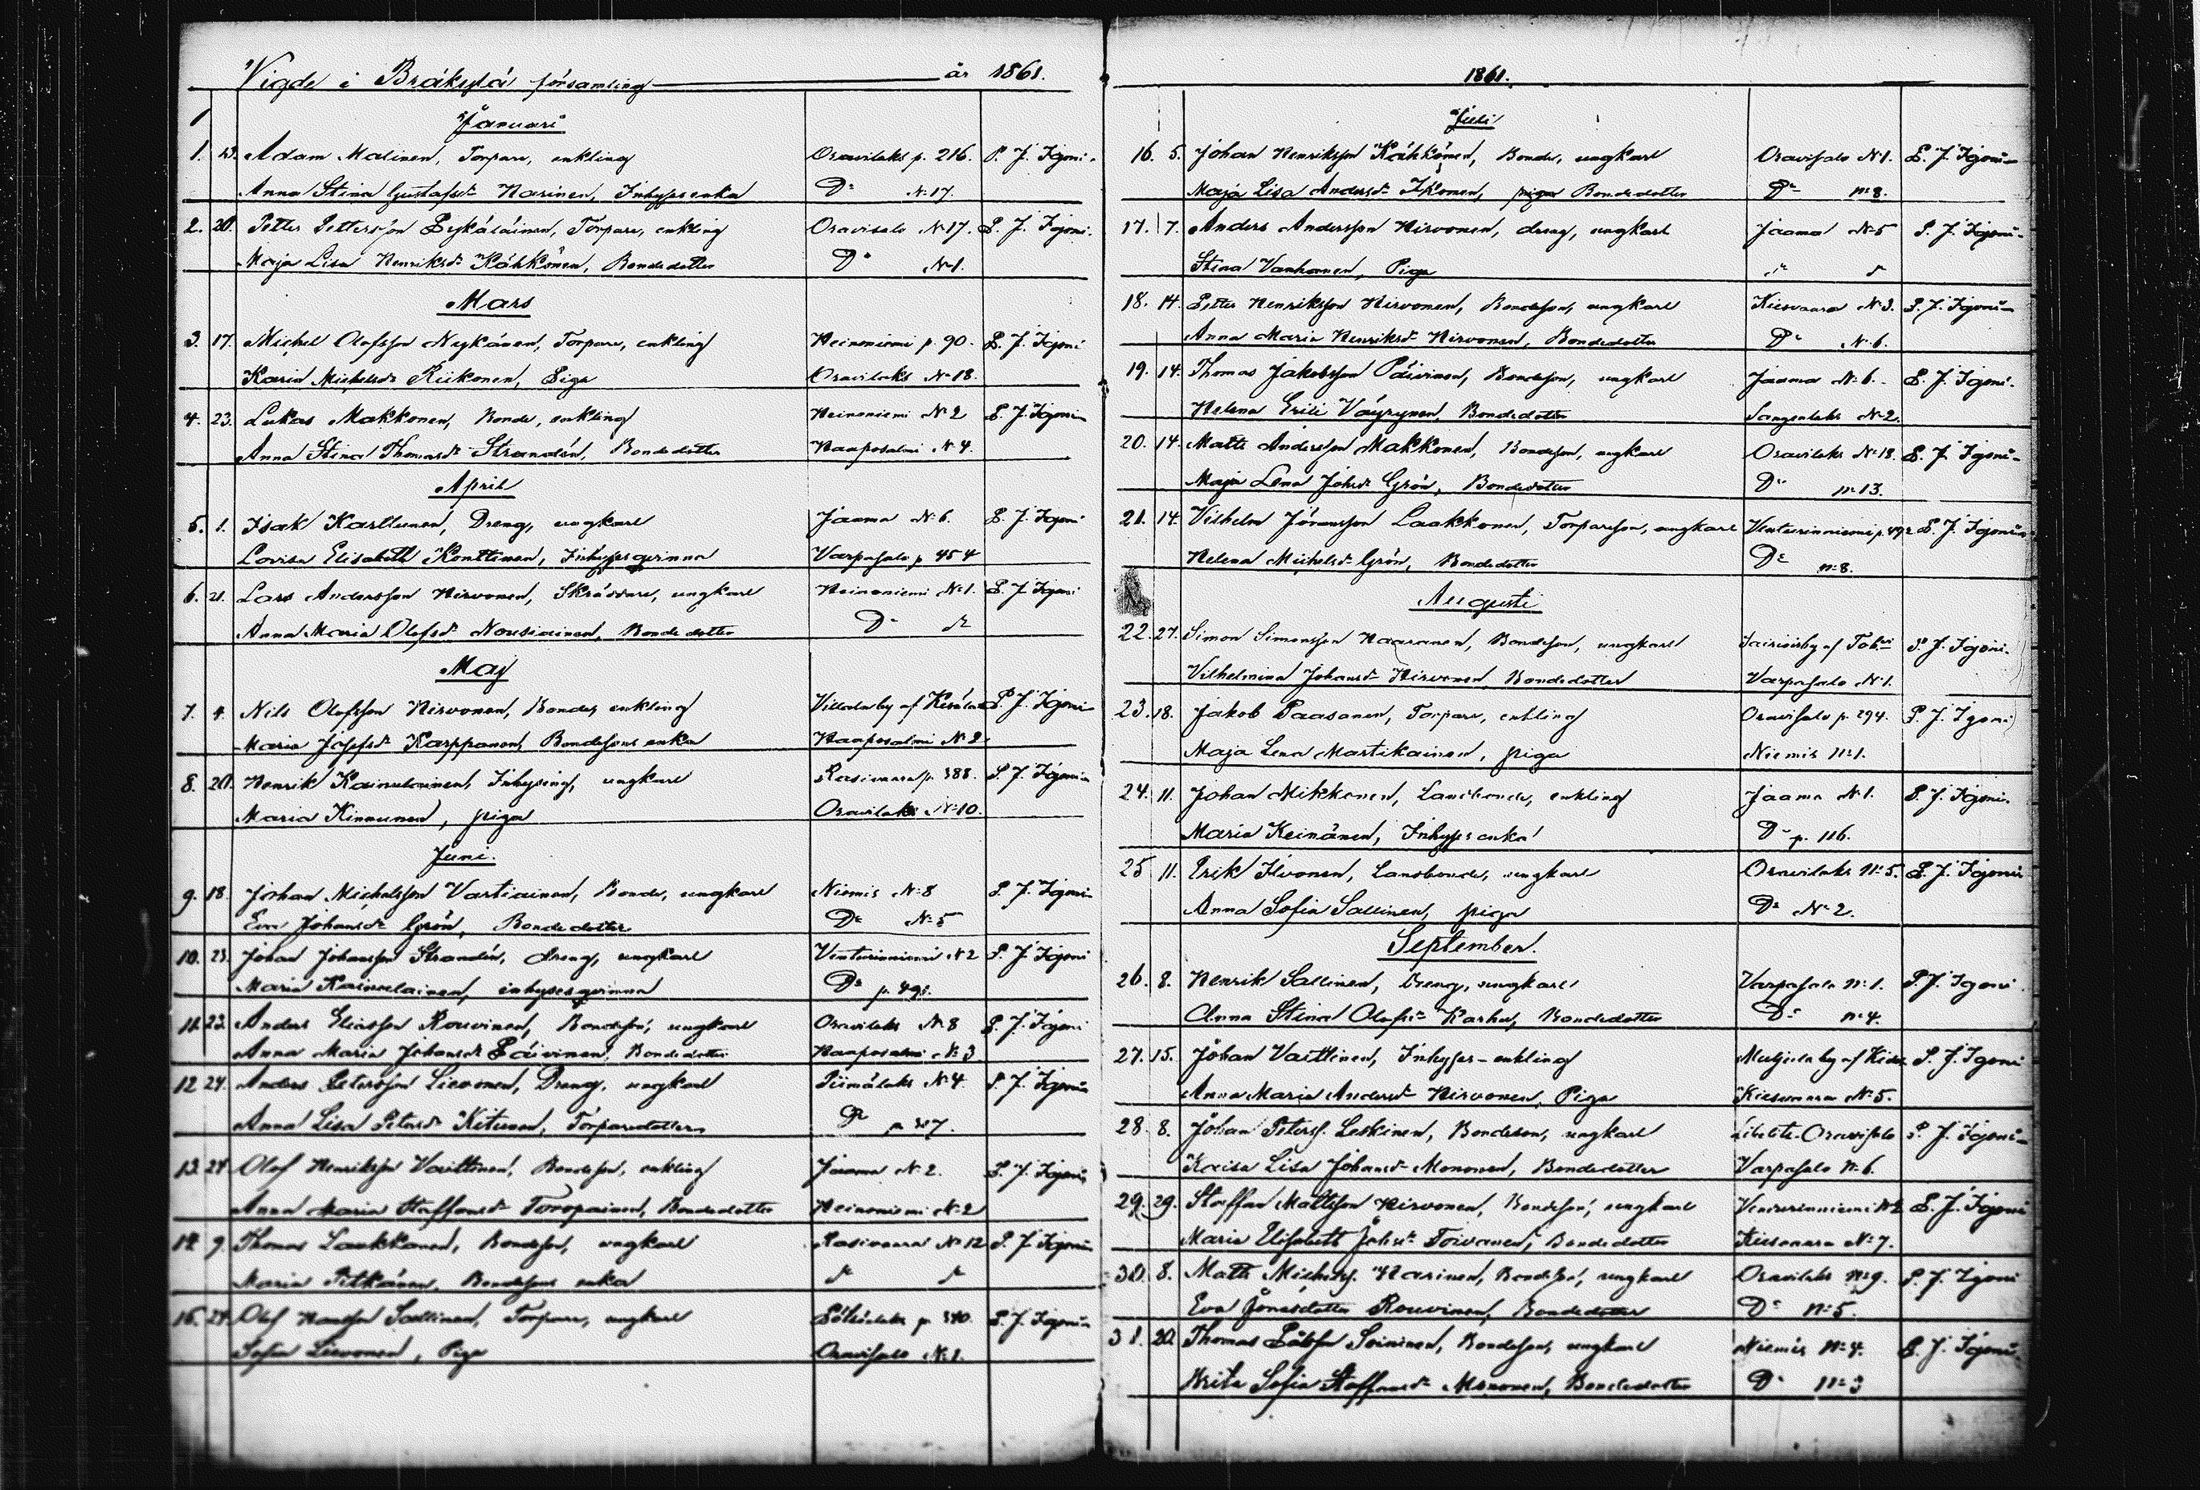 Vigde i Bräkylä församling år 1861.
Januari
1. Adam Malinen, Torpare, enkling Oravilaks p. 216. P. J. Igoni.
Anna Stina Gustafsdr Narinen, Inhyses enka Do No 17.
2. 20. Petter Pettersson Torpare, enkling Oravisalo No 17. P. J. Igoni.
Maja Lisa Henriksdr Kähkönen, Bondedotter Do No 1.
Mars
3. 17. Michel Olofsson Nykänen, Torpare, enkling Heinoniemi p. 90. P. J. Igoni
Karin Michelsdr Riikonen, Piga Oravilaks No 18.
4. 23. Lukas Makkonen, Bonde, enkling Heinoniemi No 2 P. J. Igoni
Anna Stina Thomasdr Strandén, Bondedotter Haaposalmi No 4.
April
5. 1. Isak Karttunen, Dreng, ungkarl Jaama No 6. P. J. Igoni
Lovisa Elisabeth Konttinen, Inhyses qvinna Varpasalo p. 454
6. 21. Lars Andersson Hirvonen, Skräddare, ungkarl Heinoniemi No 1. P. J. Igoni
Anna Maria Olofsdr Nousiainen, Bondedotter Do do
Maj
7. 4. Nils Olofsson Hirvonen, Bonde, enkling by af P. J. Igoni
Maria Josefsdr Karppanen, Bondesons enka Haaposalmi No 2.
8. 20. Henrik Kainulainen, Inhysing, ungkarl Rasivaara p. 388. P. J. Igoni
Maria Kinnunen, piga Oravilaks No 10.
Juni.
9. 18. Johan Michelsson Vartiainen, Bonde, ungkarl Niemis No 8 P. J. Igoni
Eva Johansdr Grön, Bondedotter Do No 5
10. 23. Johan Johansson Strandén, dreng, ungkarl No 2 P. J. Igoni
Maria Kainulainen, inhysesqvinna Do p.
11. 23. Anders Eliasson Rouvinen, Bondeson, ungkarl Oravilaks No 8 P. J. Igoni
Anna Maria Johansdr Päivinen, Bondedotter Haaposalmi No 3
12 24. Anders Petersson Lievonen, Dreng, ungkarl Piimälaks No 4. P. J. Igoni
Anna Lisa Petersdr Kitunen, Torparedotter Do p.
13. 24. Olof Henriksson Vaittinen, Bondeson, enkling Jaama No 2. P. J. Igoni
Anna Maria Staffansdr Toropainen, Bondedotter Heinoniemi No 2
14. 9. Thomas Laukkanen, Bondeson, ungkarl Rasivaara No 12 P. J. Igoni
Maria Pitkänen, Bondesons enka do do
15. 24. Olof Hansson Sallinen, Torpare, ungkarl p. 340. P. J. Igoni
Sofia Lievonen, Piga Oravisalo No 1.
1861.
Juli
16. 5. Johan Henriksson Kähkönen, Bonde, ungkarl Oravisalo No 1. P. J. Igoni
Maja Lisa Andersdr Ikonen, piga Bondedotter Do No 8.
17. 7. Anders Andersson Hirvonen, dreng, ungkarl Jaama No 5 P. J. Igoni.
Stina Vanhanen, Piga do do
18. 14. Petter Henriksson Hirvonen, Bondeson, ungkarl Kiesvaara No 3. P. J. Igoni
Anna Maria Henriksdr Hirvonen, Bondedotter Do No 6.
19. 14. Thomas Jakobsson Päivinen, Bondeson, ungkarl Jaama No 6. P. J. Igoni.
Helena Väyrynen, Bondedotter Sangenlaks No 2.
20. 14. Matts Andersson Makkonen, Bondeson, ungkarl Oravilaks No 18. P. J. Igoni
Maja Lena Johsdr Grön, Bondedotter Do No 13.
21. 14. Vilhelm Jöransson Laakkonen, Torpareson, ungkarl p. 492 P. J. Igoni
Helena Michelsdr Grön, Bondedotter Do No 8.
Augusti
22. 27. Simon Simonsson Naaranen, Bondeson, ungkarl by af P. J. Igoni.
Vilhelmina Johansdr Hirvonen, Bondedotter Varpasalo No 1.
23. 18. Jakob Paasonen, Torpare, enkling Oravisalo p. 294. P. J. Igoni
Maja Lena Martikainen, piga Niemis No 1.
24. 11. Johan Mikkonen, Landbonde, enkling Jaama No 1. P. J. Igoni.
Maria Keinänen, Inhyses enka Do p. 116.
25 11. Erik Ilvonen, Landbonde, ungkarl Oravilaks No 5. P. J. Igoni
Anna Sofia Sallinen, piga Do No 2.
September.
26. 8. Henrik Sallinen, Dreng, ungkarl Varpasalo No 1. P. J. Igoni.
Anna Stina Olofsdr Karhu, Bondedotter Do No 4.
27. 15. Johan Vaittinen, Inhyses-enkling by af P. J. Igoni
Anna Maria Andersdr Hirvonen, Piga Kiesvaara No 5.
28. 8. Johan Peterss. Leskinen, Bondeson, ungkarl Oravisalo P. J. Igoni
Kaisa Lisa Johansdr Mononen, Bondedotter Varpasalo No 6.
29. 29. Staffan Mattsson Hirvonen, Bondeson, ungkarl No 2 P. J. Igoni
Maria Elisabeth Johsdr Toivanen, Bondedotter Kiesvaara No 7.
30. 8. Matts Michelss. Narinen, Bondeson, ungkarl Oravilaks No 9. P. J. Igoni
Eva Jönasdotter Rouvinen, Bondedotter Do No 5.
31. 20. Thomas Soininen, Bondeson, ungkarl Niemis No 4. P. J. Igoni
Brita Sofia Staffansdr Mononen, Bondedotter Do No 3